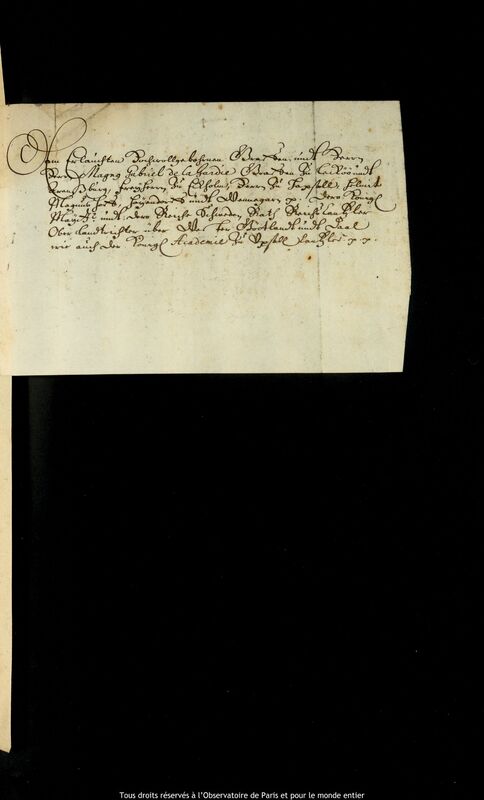 Dem Erlauchten Hochwollgebohrnen Graffen undt Herrn
Herrn Magno Gabriel de la Gardie Graffen zu Leckoo undt
Arensburg, freyherrn zu Eckholm, Herrn zu Hapsell, Helmet
Magnushoff, Höyendorff undt Wennegarn pp. Ihrer Königl
Mayest: undt dero Reiche Schweden Rath Reichs Cantzler
Ober Landtrichter über Wester Gothlandt undt Daal
wie auch der Königl Academie zu Upsall Cantzler p p.
Tous droits réservés à l'Observatoire de Paris et pour le monde entier